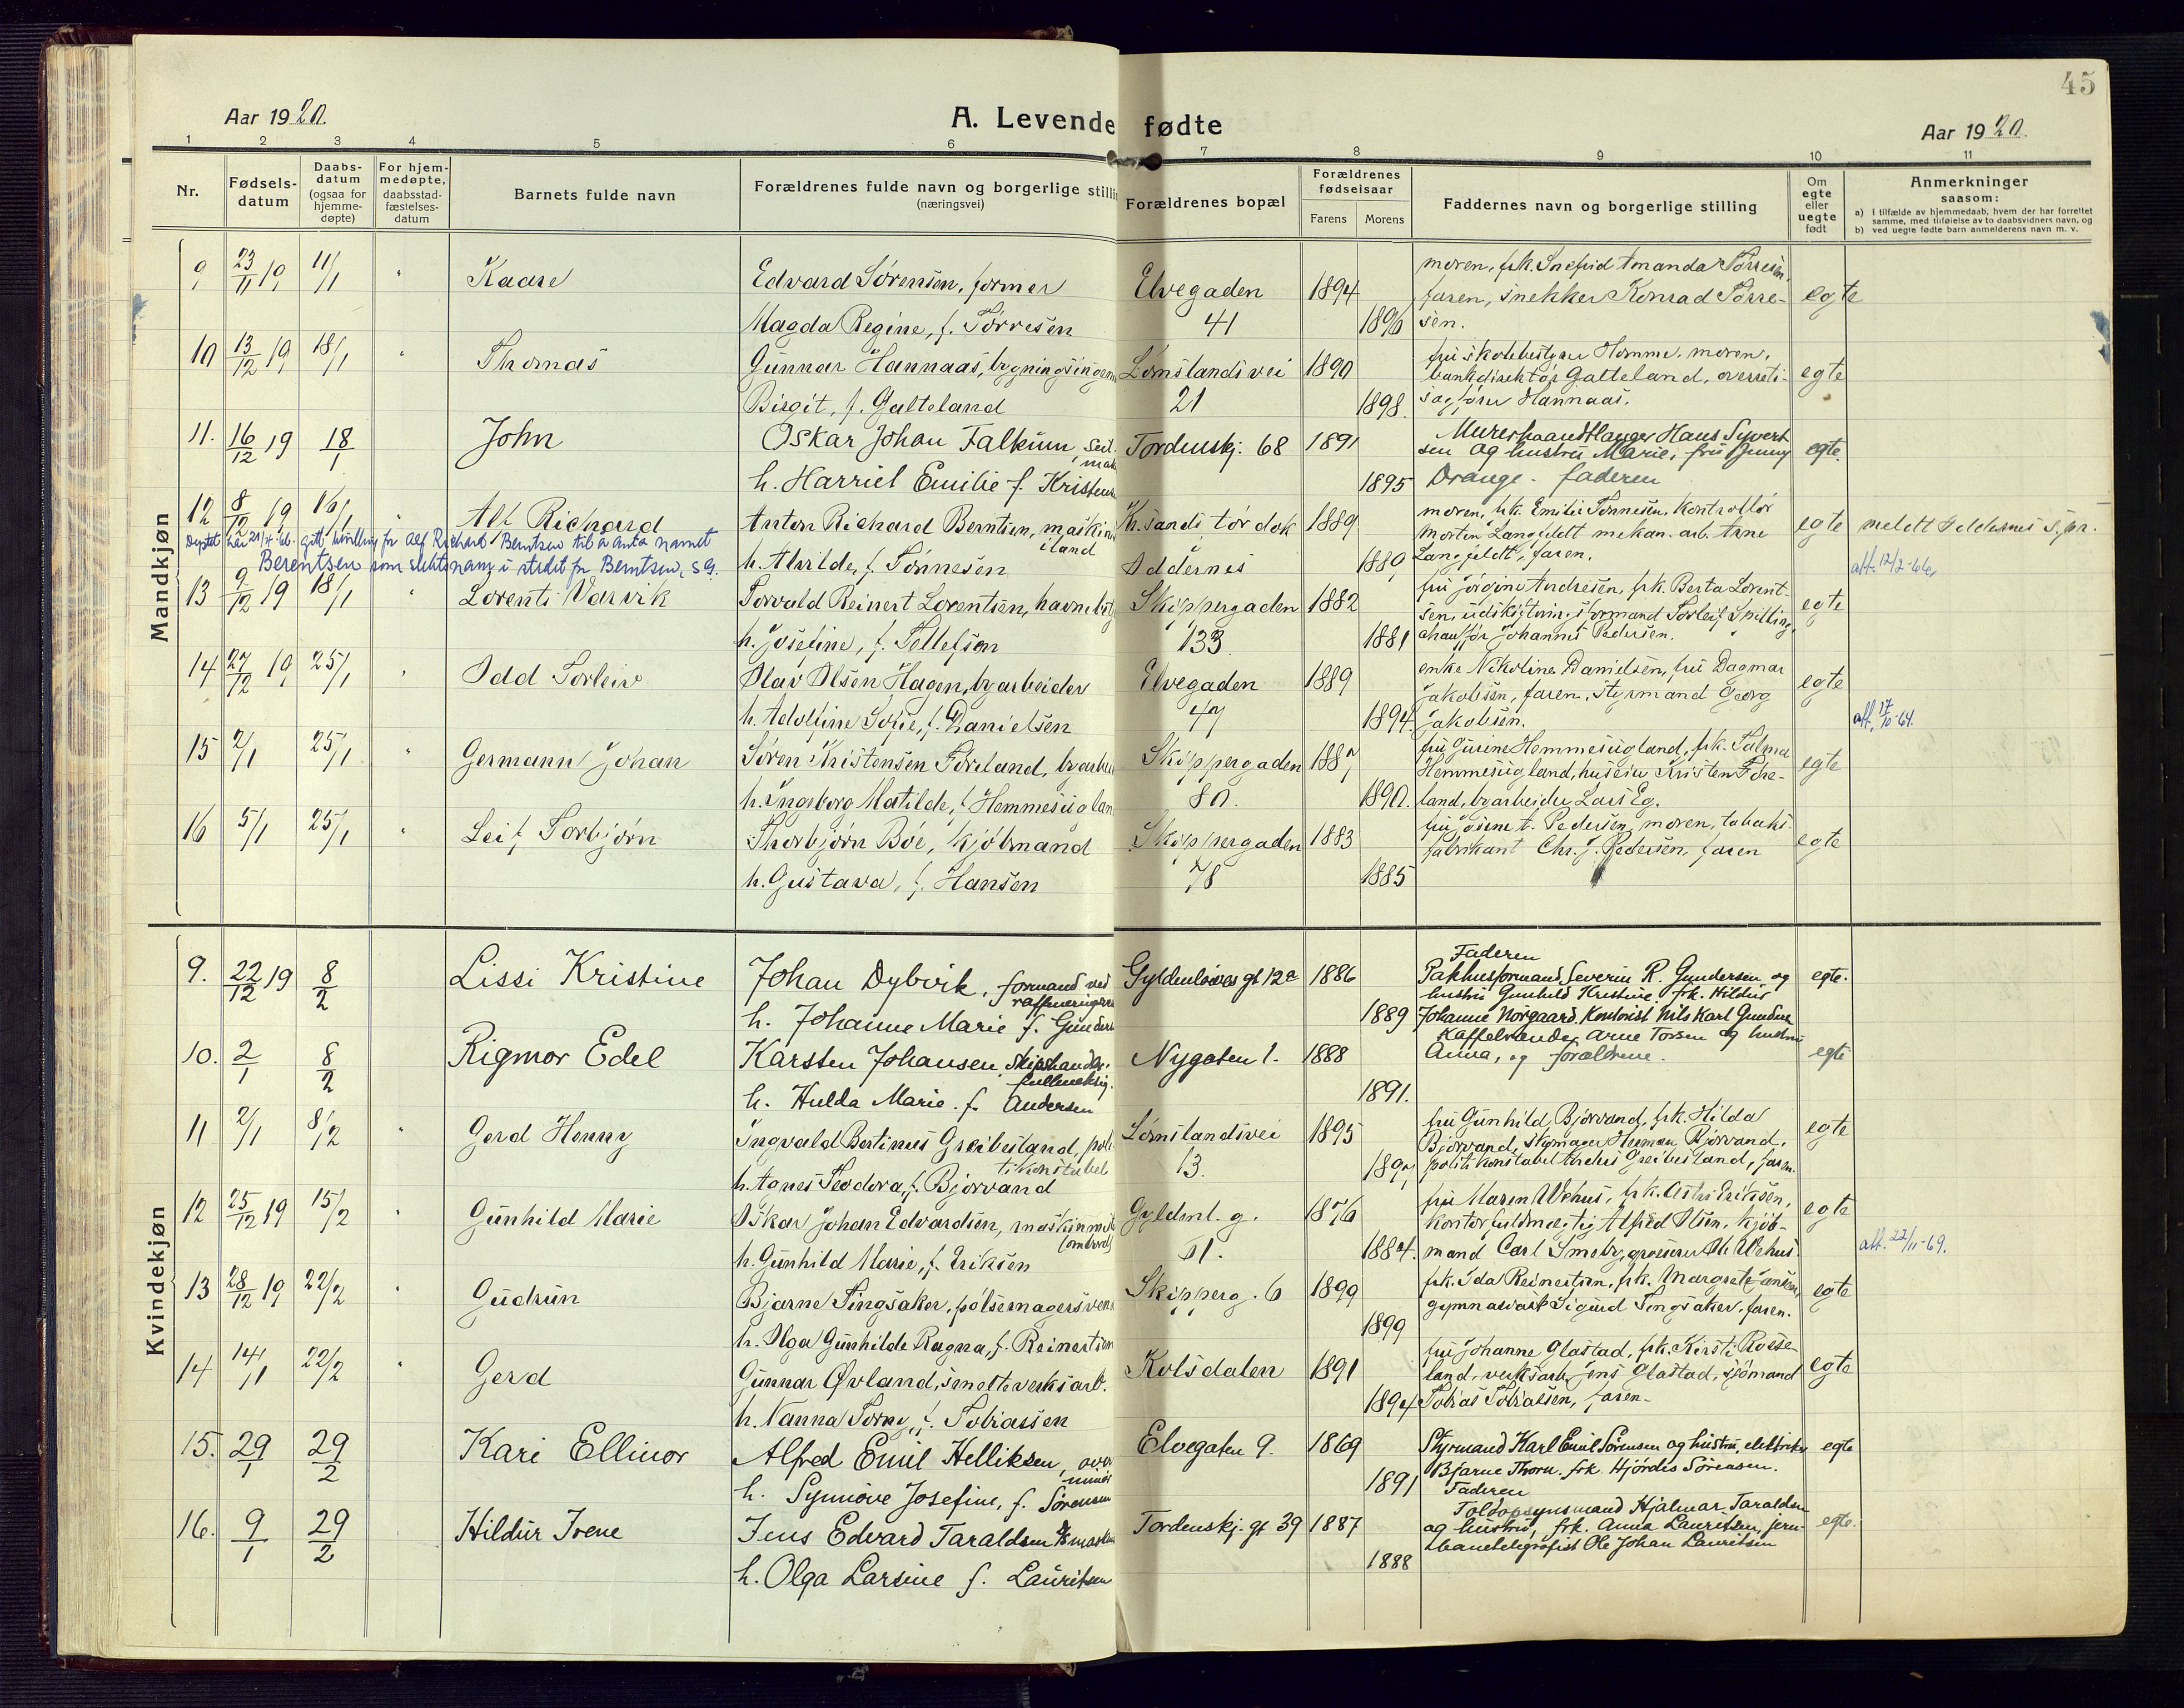 45
Aar 1920.
A. Levende fødte
Aar 1920.
1 2 3 4 5 6 7 8 9 10 11
Nr.
Fødsels-
datum
Daabs-
datum
(ogsaa for
hjemme-
døpte)
For hjem-
medøpte,
daabsstad-
fæstelses-
datum
Barnets fulde navn
Forældrenes fulde navn og borgerlige
(næringsvei)
Forældrenes bopæl
Forældrenes
fødselsaar
Farens Morens
Faddernes navn og borgerlige stilling
Om
egte
eller
uegte
født
Anmerkninger
saasom:
a) I tilfælde av hjemmedaab, hvem der har forrettet
samme, med tilføielse av to daabsvidners navn, og
b) ved uegte fødte barn anmelderens navn m. v.
Mandkjøn
9 23/11 19 11/1 " Kaare Edvard Sørensen, former Elvegaden 1894 egte
Magda Regine, f. Tørresen 41 1896
moren, frk. Snefrid Amanda Tørresen,
faren, snekker Konrad Tørre-
sen.
10 13/12 19 18/1 " Thomas Gunnar Hannaas, Lømslandsvei 1890 egte
Birgit, f. Galteland 21 1898.
moren,
bankdirektør Galteland,
Hannaas.
11. 16/12 19 18/1 John Oskar Johan Falkum, Tordenskj. 68 1891 egte.
h. Harriet Emilie f. 1895
Murerhaandlanger Hans Syvert
sen og hustru Marie, fru Jenny
Drange. faderen
12 8/12 19 16/1 " Alf Richard Anton Richard Berntsen, Kr.sands tørdok 1889 egte meldt Oddernes s.pr.
iland
h. Alvilde, f. Tønnesen Oddernes 1889
moren, frk. Emilie Tønnesen, kontrollør
Morten Langfeldt mekan. arb. Arne
Langfeldt, faren.
att. 12/2-66,
bevilling for Alf Richard Berntsen til å anta namnet
Berentsen som slektsnamn i stedet for Berntsen, SG.
13 9/12 19 18/1 " Lorents Varvik Torvald Reinert Lorentsen, Skippergaden 1882 egte
h. Josefine, f. Tellefsen 133 1881
fru Jørgine Andresen, frk. Berta Lorent-
sen, udskiftningsformand Torleif Spilling,
chauffør Johannes Pedersen.
14 27/12 19 25/1 " Odd Torleiv Olav Olsen Hagen, byarbeider Elvegaden 1889 egte
h. Adolfine Sofie, f. Danielsen 47 1894.
enke Nikoline Danielsen, fru Dagmar
Jakobsen, faren, styrmand Georg
Jakobsen.
att. 17/10-64.
15 2/1 25/1 " Germann Johan Søren Kristensen Føreland, Skippergaden 1887 egte
h. Ingeborg Matilde, f. 80. 1890.
fru Gurine Hemmesugland, frk. Talma
Hemmesugland, huseier Kristen Føre-
land, byarbeider Lars Eg.
16 5/1 25/1 " Leif Torbjørn Thorbjørn Boe, kjøbmand Skippergaden 1883 egte
h. Gustava, f. Hansen 78 1885
fru Josine t. Pedersen, moren, tobaks-
fabrikant Chr. J. Pedersen, faren
Kvindekjøn
9. 22/12 19 8/2 Lissi Kristine Johan Dybvik, formand ved Gyldenløves gt 12a 1886 egte.
h. Johanne Marie f. 1889
Faderen
Pakhusformand Severin R. Gundersen og
hustru Gunhild Kristine frk. Hildur
Johanne Norgaard. Kontorist Nils Karl
10. 2/1 8/2 Rigmor Edel Karsten Johansen, Nygaten 1. 1888 egte
h. Hulda Marie f. Andersen 1891.
Arne Torsen og hustru
Anna, og forældrene.
11 2/1 8/2 " Gerd Henny Ingvald Bertinius Greibesland, Lømslandsvei 1895 egte
tikonstabel
h. Agnes Teodora, f. Bjorvand 13. 1897
fru Gunhild Bjorvand, frk. Hilda
Bjorvand, skomager Herman Bjorvand,
politikonstabel Anders Greibesland, faren.
12 25/12 19 15/2 " Gunhild Marie Oskar Johan Edvardsen, Gyldenl. g. 1876 egte
(ombord)
h. Gunhild Marie, f. Eriksen 61. 1884.
fru Maren Wehus, frk. Astri Eriksen,
kontorfuldmegtig Alfred Olsen, kjøb-
mand Carl Smeby, grosserer Wehus.
att. 22/11-69.
13 28/12 19 22/2 " Gudrun Bjarne Tingsaker, pølsemagersvend Skipperg. 6 1899 egte
h. Olga Gunhilde Ragna, f. Reinertsen 1899
frk. Ida Reinertsen, frk. Margrete Jansen,
gymnasiast Sigurd Tingsaker, faren.
14 14/1 22/2 " Gerd Gunnar Øvland, smelteverksarb. Kolsdalen 1891 egte
h. Nanna Torny, f. Tobiassen 1894
fru Johanne Glastad, frk. Kirsti Rosse-
land, verksarb. Jens Glastad, sjømand
Tobias Tobiassen, faren.
15. 29/1 29/2 Kari Ellinor Alfred Emil Helliksen, Elvegaten 9. 1869 egte
h. Synnøve Josefine, f. Sørensen 1891
Styrmand Karl Emil Sørensen og hustru, elektriker
Bjarne Thorn. frk. Hjørdis Sørensen.
Faderen
16. 9/1 29/2 Hildur Irene Jens Edvard Taraldsen Tordenskj. gt 39 1887 egte.
h. Olga Larsine f. Lauritsen 1888
Toldopsynsmand Hjalmar Taraldsen
og hustru, frk. Anna Lauritsen, jern-
banetelegrafist Ole Johan Lauritsen